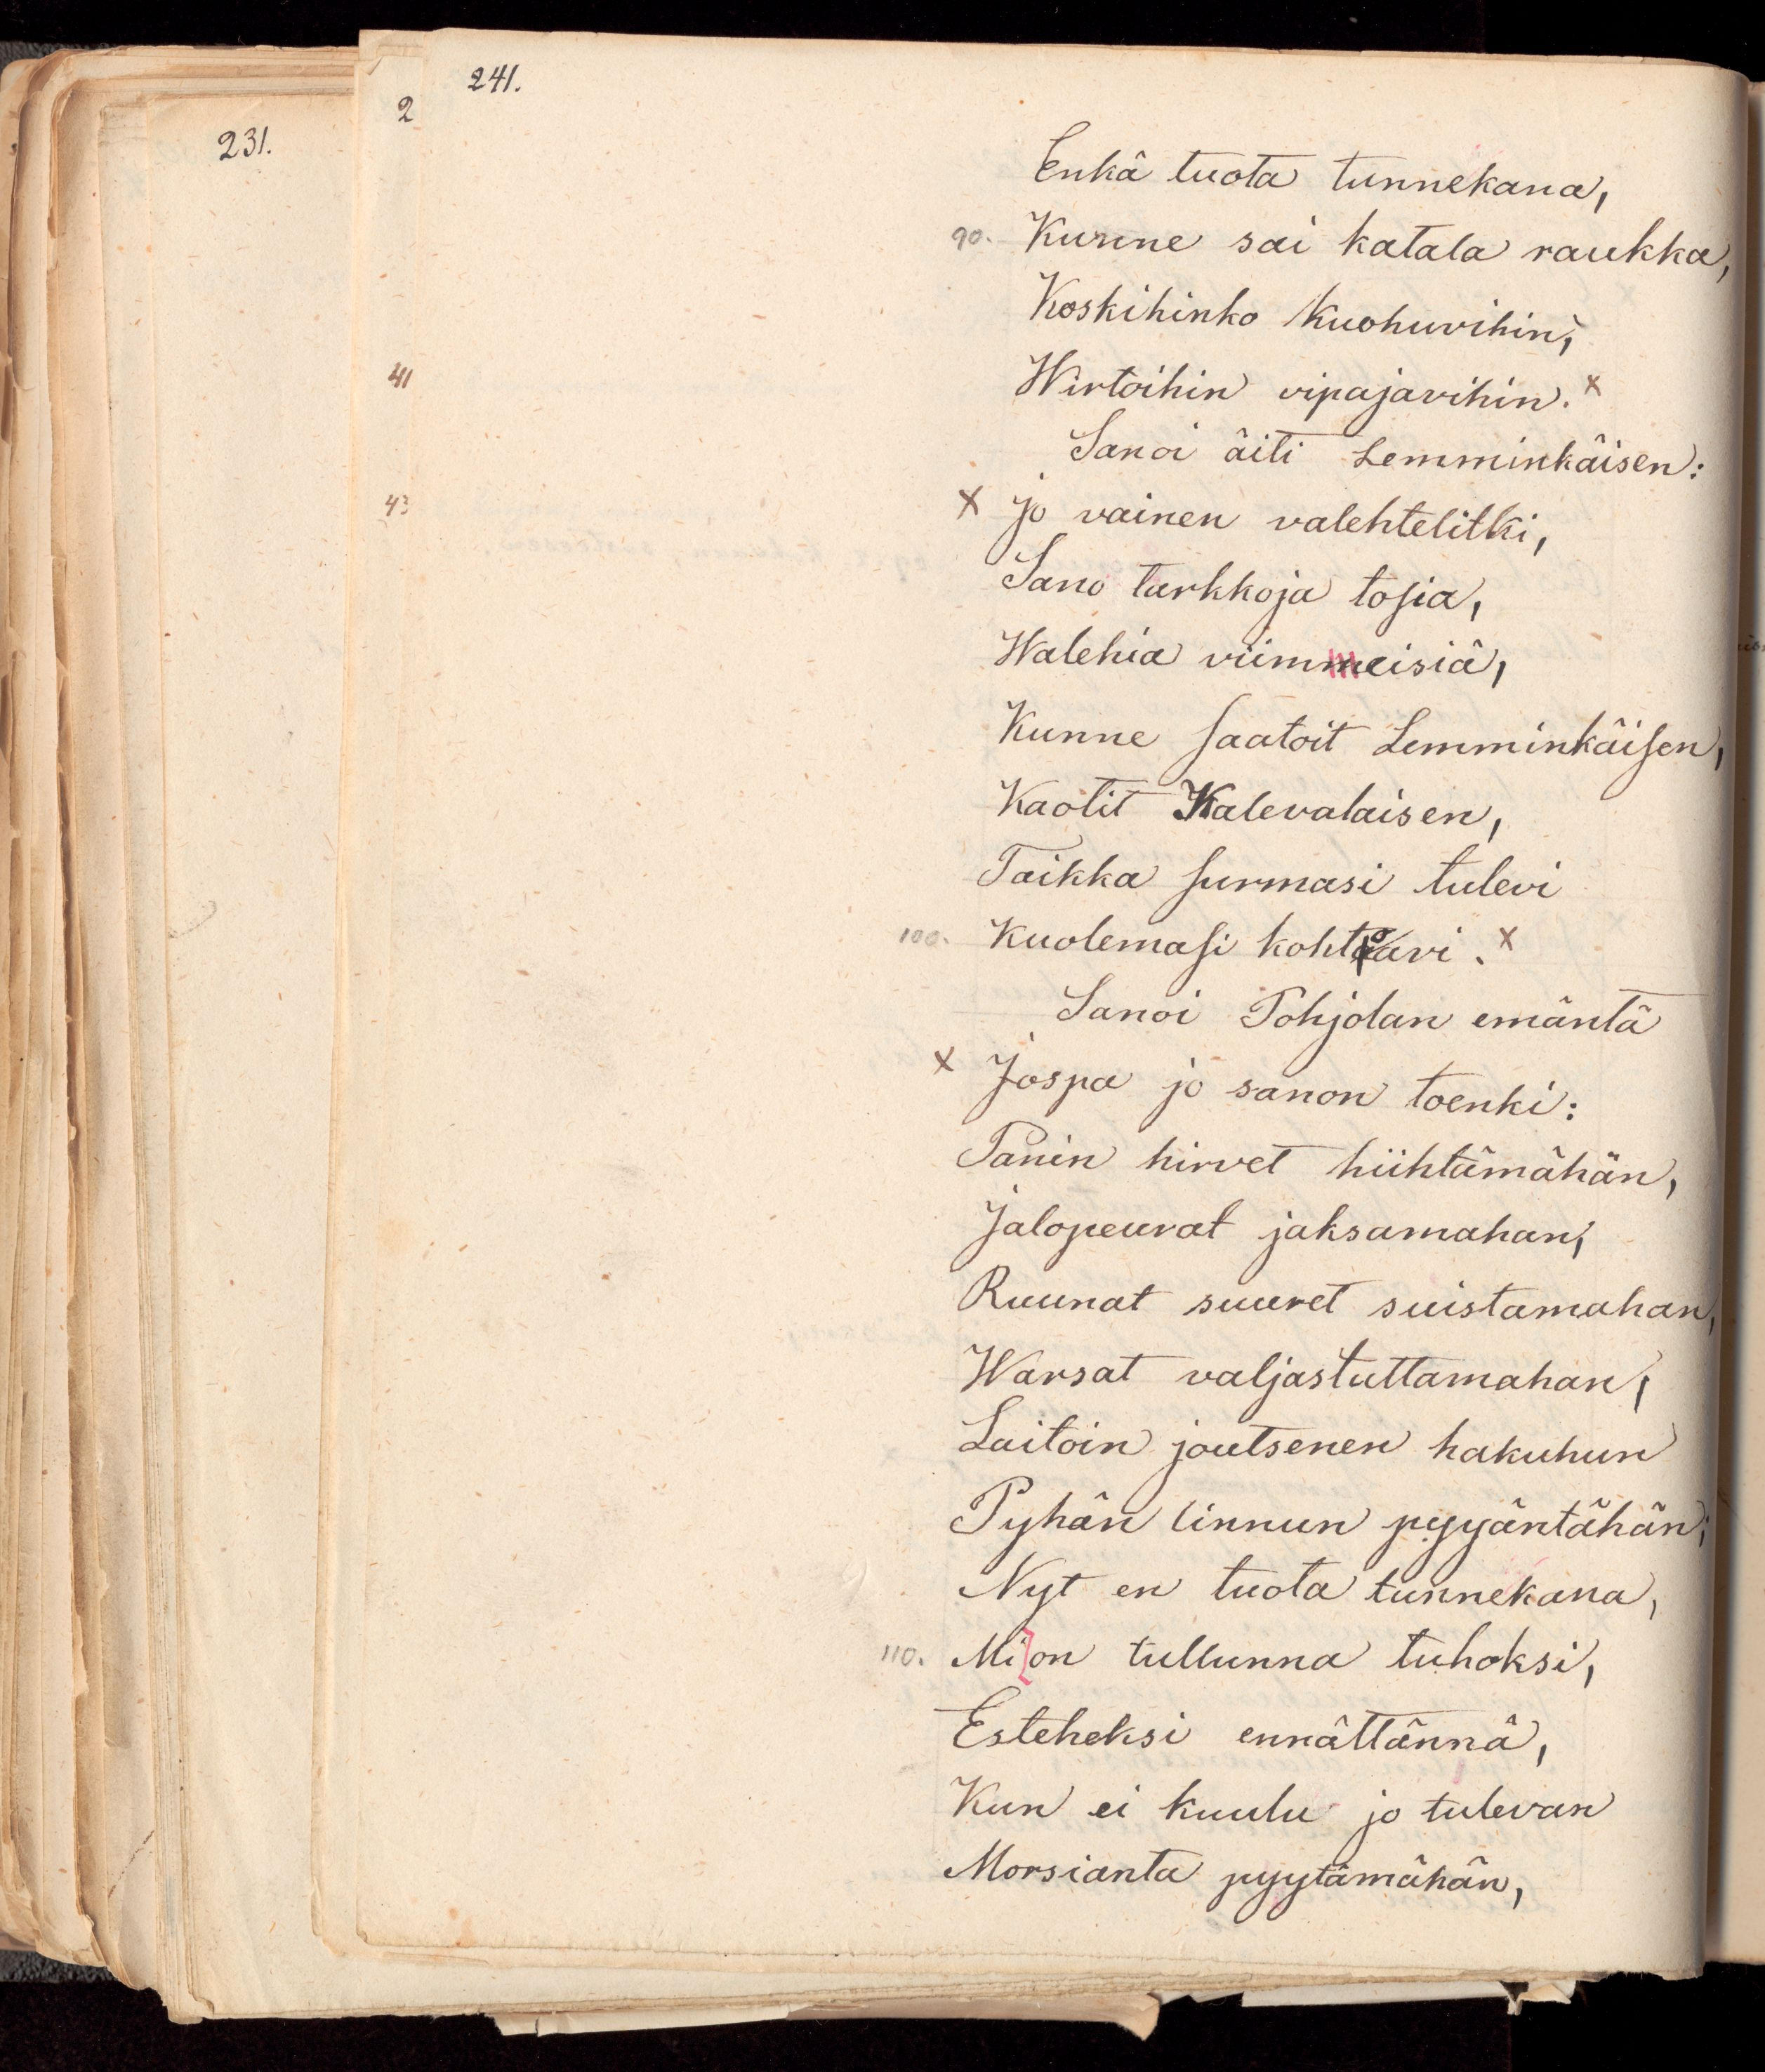 241.
2
231.
Enkä tuota tunnekana,
90. Kunne sai katala raukka,
Koskihinko kuohuvihin,
41
Wirtoihin vipajavihin. x
Sanoi äiti Lemminkäisen:
43
x Jo vainen valehtelitki,
Sano tarkkoja tosia,
Walehia viimmeisiä,
Kunne saatoit Lemminkäisen,
Kaotit Kalevalaisen,
Taikka surmasi tulevi
100. Kuolemasi kohtoavi. x
Sanoi Pohjolan emäntä
x Jospa jo sanon toenki:
Panin hirvet hiihtämähän,
Jalopeurat jaksamahan,
Ruunat suuret suistamahan,
Warsat valjastuttamahan,
Laitoin joutsenen hakuhun
Pyhän linnun pyyäntähän;
Nyt en tuota tunnekana,
110. Mi on tullunna tuhoksi,
Esteheksi ennättännä,
Kun ei kuulu jo tulevan
Morsianta pyytämähän,